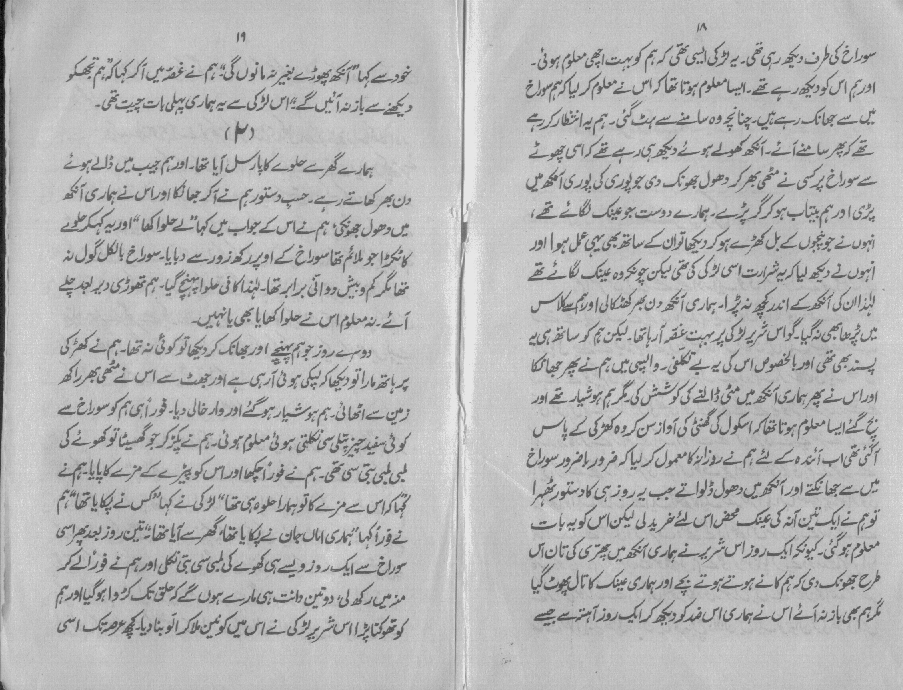 ۱۸
سوراخ کی طرف دیکھ رہی تھی۔ یہ لڑکی ایسی تھی کہ ہم کو بہت اچھی معلوم ہوئی۔
اور ہم اس کو دیکھ رہے تھے۔ ایسا معلوم ہوتا تھا کہ اس نے معلوم کر لیا کہ ہم سوراخ
میں سے جھانک رہے ہیں۔ چنانچہ وہ سامنے سے ہٹ گئی۔ ہم یہ انتظار کر رہے
تھے کہ پھر سامنے آئے۔ آنکھ کھولے ہوئے دیکھ ہی رہے تھے کہ اسی چھوٹے
سے سوراخ پر کسی نے مٹھی بھر کر دھول جھونک دی جو پوری کی پوری آنکھ میں
پڑی اور ہم بیتاب ہو کر گر پڑے۔ ہمارے دوست جو عینک لگائے تھے،
انہوں نے جو پنجوں کے بل کھڑے ہو کر دیکھا تو ان کے ساتھ بھی یہی عمل ہوا اور
انہوں نے دیکھ لیا کہ یہ شرارت اسی لڑکی کی تھی لیکن چونکہ وہ عینک لگائے تھے
لہٰذا ان کی آنکھ کے اندر کچھ نہ پڑا۔ ہماری آنکھ دن بھر کھٹکا کی اور ہم سے کلاس
میں پڑھا بھی نہ گیا۔ گو اس شریر لڑکی پر بہت غصہ آ رہا تھا۔ لیکن ہم کو ساتھ ہی یہ
پسند بھی تھی اور بالخصوص اس کی یہ بے تکلفی۔ واپسی میں ہم نے پھر جھانکا
اور اس نے پھر ہماری آنکھ میں مٹی ڈالنے کی کوشش کی۔ مگر ہم ہوشیار تھے اور
بچ گئے ایسا معلوم ہوتا تھا کہ اسکول کی گھنٹی کی آواز سن کر وہ کھڑکی کے پاس
آ گئی تھی اب آئندہ کے لئے ہم نے روزانہ کا معمول کر لیا کہ ضرور بالضرور سوراخ
میں سے جھانکتے اور آنکھ میں دھول ڈلواتے جب یہ روز ہی کا دستور ٹھہرا
تو ہم نے ایک تین آنہ کی عینک محض اس لئے خرید لی لیکن اس کو یہ بات
معلوم ہو گئی۔ کیونکہ ایک روز اس شریر نے ہماری آنکھ میں چھتری کی تان اس
طرح جھونک دی کہ ہم کانے ہوتے ہوتے بچے اور ہماری عینک کا تال پھوٹ گیا
مگر ہم بھی باز نہ آئے اس نے ہماری اس ضد کو دیکھ کر ایک روز آہستہ سے جیسے
۱۹
خود سے کہا "آنکھ پھوڑے بغیر نہ مانوں گی" ہم نے غصہ میں آ کر کہا کہ "ہم تجھ کو
دیکھنے سے باز نہ آئیں گے" اس لڑکی سے یہ ہماری پہلی بات چیت تھی۔
(۲)
ہمارے گھر سے حلوے کا پارسل آیا تھا۔ اور ہم جیب میں ڈالے ہوئے
دن بھر کھاتے رہے۔ حسبِ دستور ہم نے آ کر جھانکا اور اس نے ہماری آنکھ
میں دھول جھونکی، ہم نے اس کے جواب میں کہا "لے حلوا کھا" اور یہ کہہ کر حلوے
کا ٹکڑا جو ملائم تھا سوراخ کے اوپر رکھ زور سے دبایا۔ سوراخ بالکل گول نہ
تھا مگر کم و بیش دوانی برابر تھا۔ لہٰذا کافی حلوا پہنچ گیا۔ ہم تھوڑی دیر بعد چلے
آئے۔ نہ معلوم اس نے حلوا کھایا بھی یا نہیں۔
دوسرے روز جو ہم پہنچے اور جھانک کر دیکھا تو کوئی نہ تھا۔ ہم نے کھڑکی
پر ہاتھ مارا تو دیکھا کہ لپکی ہوئی آ رہی ہے اور جھٹ سے اس نے مٹھی بھر راکھ
زمین سے اٹھائی۔ ہم ہوشیار ہو گئے اور وار خالی دیا۔ فوراً ہی ہم کو سوراخ سے
کوئی سفید چیز پتلی سی نکلتی ہوئی معلوم ہوئی۔ ہم نے پکڑ کر جو گھسیٹا تو کھوئے کی
لمبی لمبی بتی سی تھی۔ ہم نے فوراً چکھا اور اس کو پیڑے کے مزے کا پایا۔ ہم نے
کہا کہ اس سے مزے کا تو ہمارا حلوہ ہی تھا" لڑکی نے کہا "کس نے پکایا تھا" ہم
نے فوراً کہا "ہماری اماں جان نے پکایا تھا، گھر سے آیا تھا" تین روز بعد پھر اسی
سوراخ سے ایک روز ویسے ہی کھوئے کی لمبی سی بتی نکلی اور ہم نے فوراً لے کر
منہ میں رکھ لی، دو تین دانت ہی مارے ہوں گے کہ حلق تک کڑوا ہو گیا اور ہم
کو تھوکنا پڑا اس شریر لڑکی نے اس میں کونین ملا کر اُلّو بنا دیا۔ کچھ عرصہ تک اسی